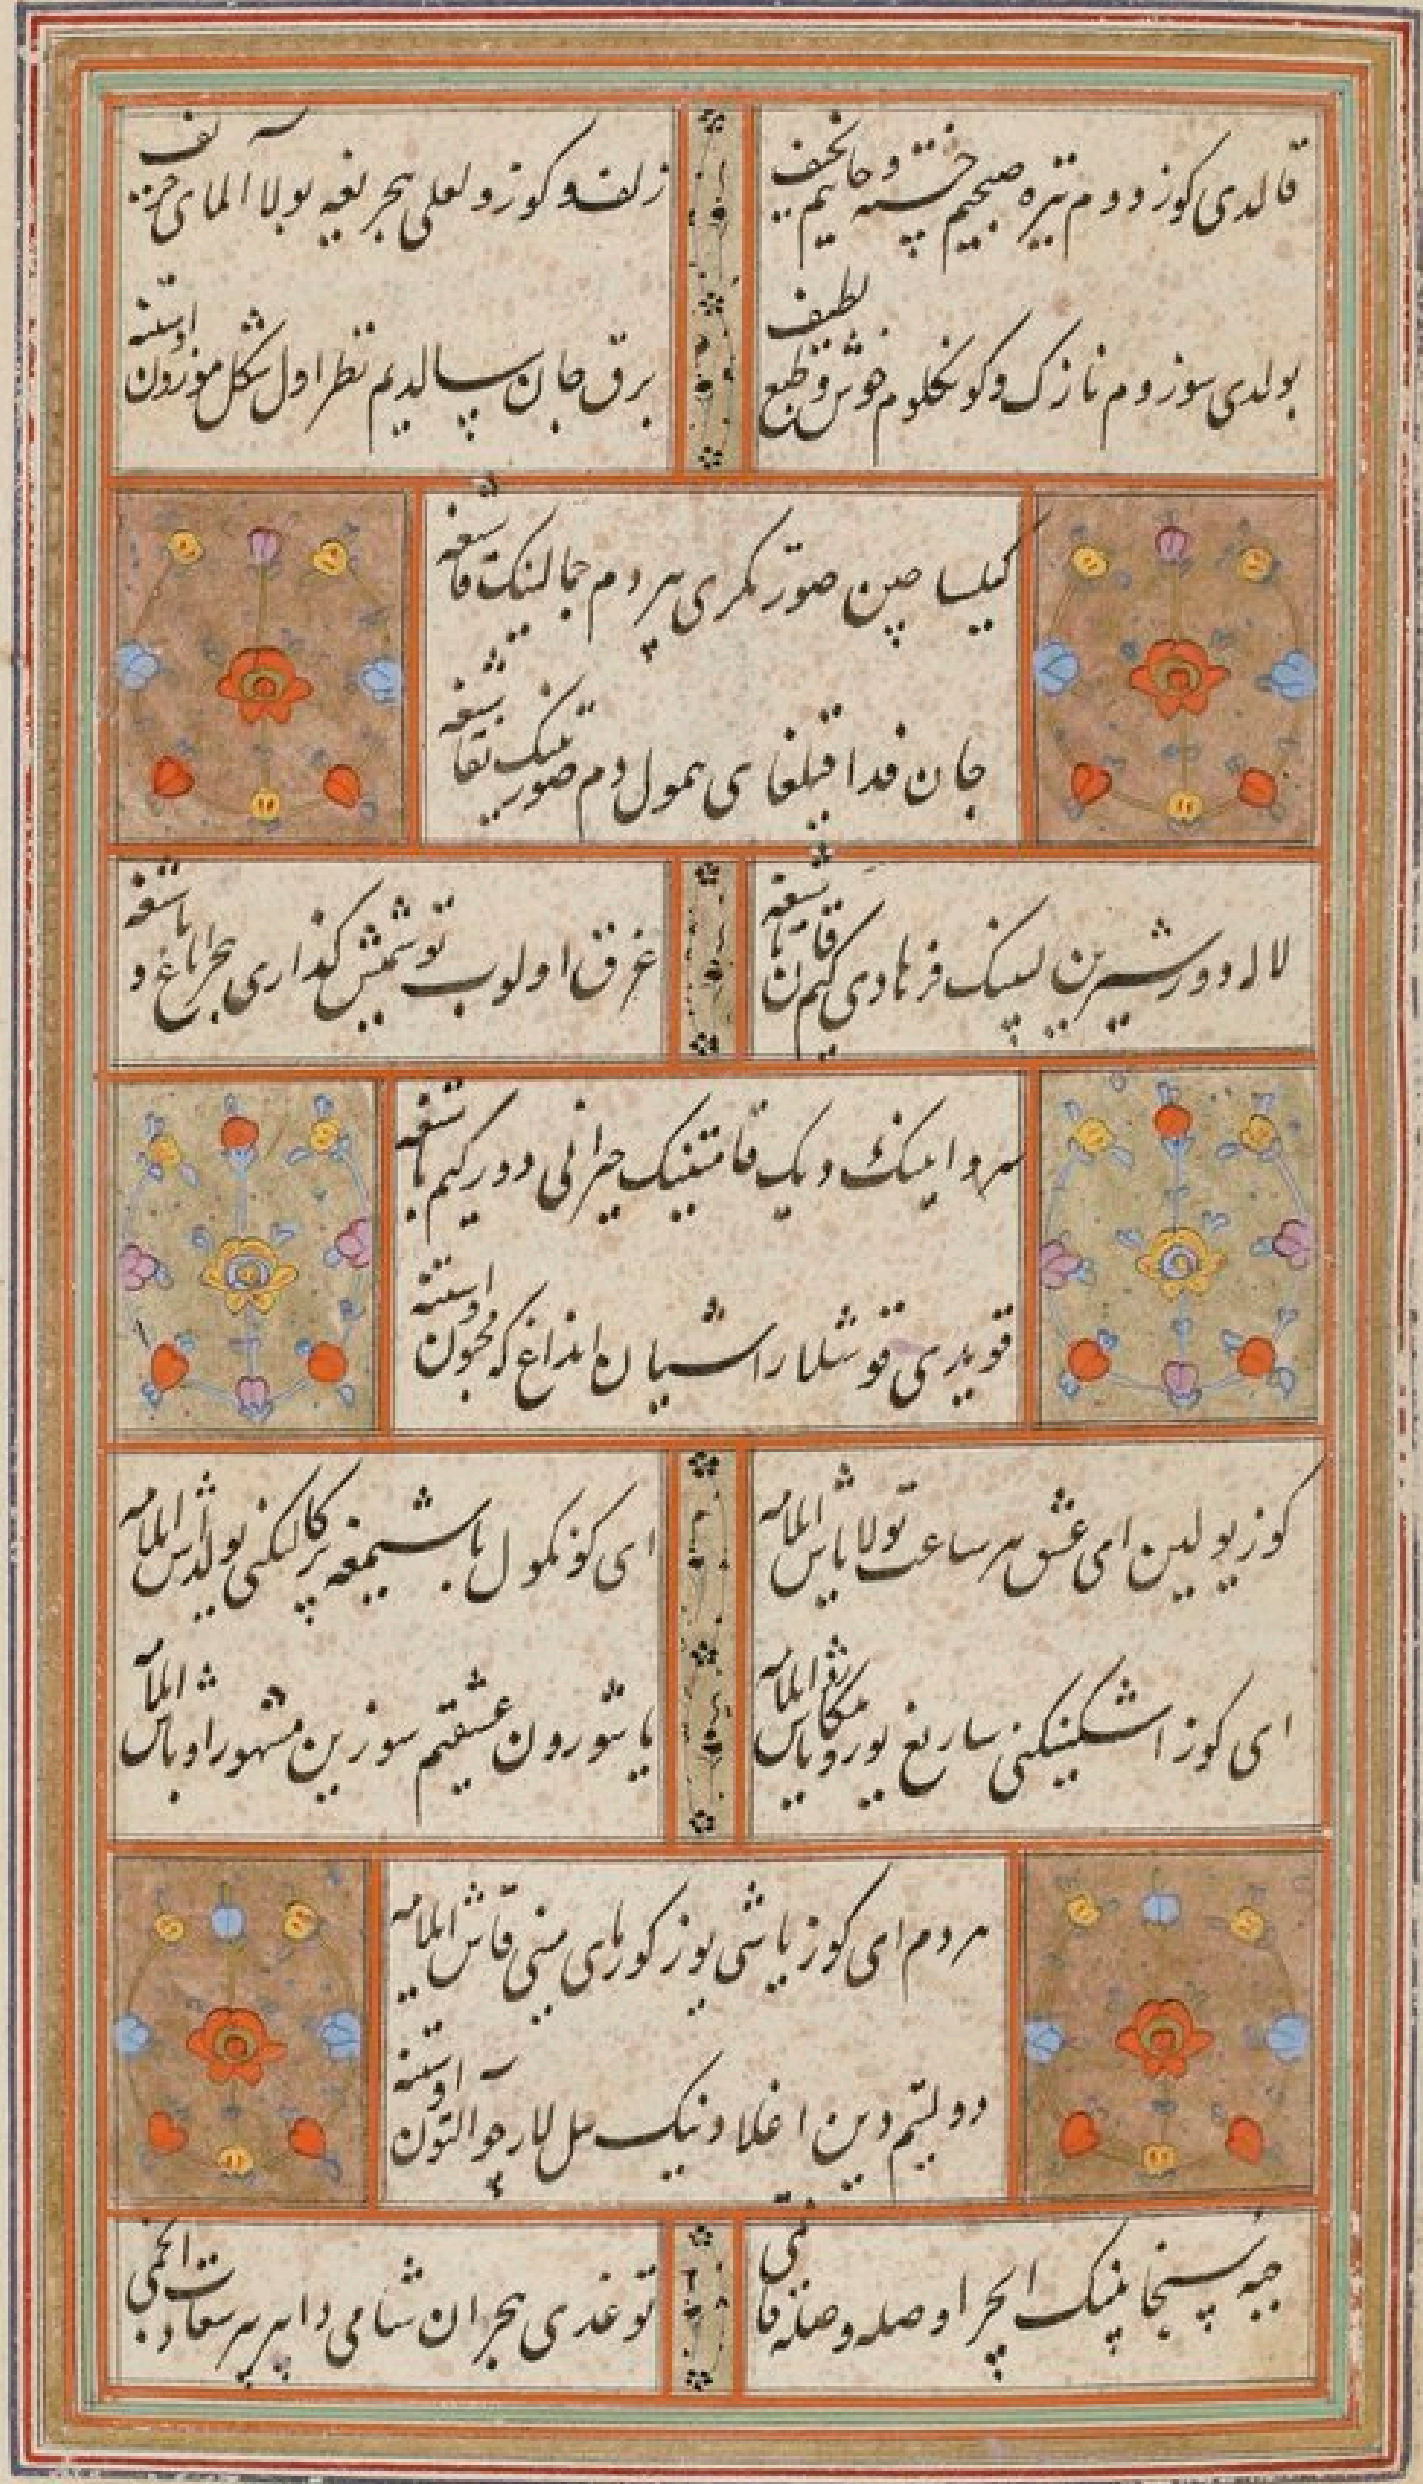 قالدی کوزودوم تیره صبحیم خسته و جانیم نحیف
زلف و کوز و لعلی هجریغه بولا آلمای حریف
بولدی سوزوم نازک و کونکلوم خوش و طبعیم لطیف
برق جان سالدیم نظر اول شکل موزون اوستنه
کیلسا چین صورتکری بیردم جمالینک قاشیغه
جان فدا قیلغای همول دم صورتینک نقاشیغه
لاله دور شیرین لبینک فرهادی کیم قان یاشیغه
غرق اولوب توشمیش گذاری هجر تاغ و تاشیغه
سرو اینک دیک قامتینک حیرانی دور کیم باشیغه
قویدی قوشلار اشیان انداغ که مجنون اوستنه
کوز یولین ای عشق هر ساعت تولا یاش ایلامه
ای کونکول باشیمغه پرکالنکنی یولداش ایلامه
ای کوز اشکینکنی ساریغ یوز مکا یاش ایلامه
یاشورون عشقیم سوزین مشهور اوباش ایلامه
مردم ای کوز یاشی یوز کورمای منی قاش ایلامه
دولتیم دین اغلادینک سل لار چو آلتون اوستنه
جبه سین جانینک ایچرا وصله وصله قانی
توغدی هجران شامی دا بیر بیر سعادت انجمی